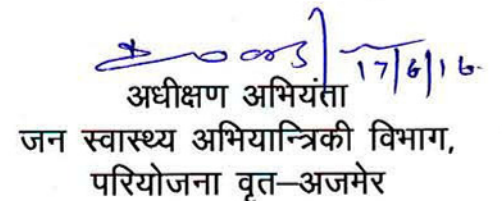 17/6/16
अधीक्षण अभियंता
जन स्वास्थ्य अभियान्त्रिकी विभाग,
परियोजना वृत–अजमेर